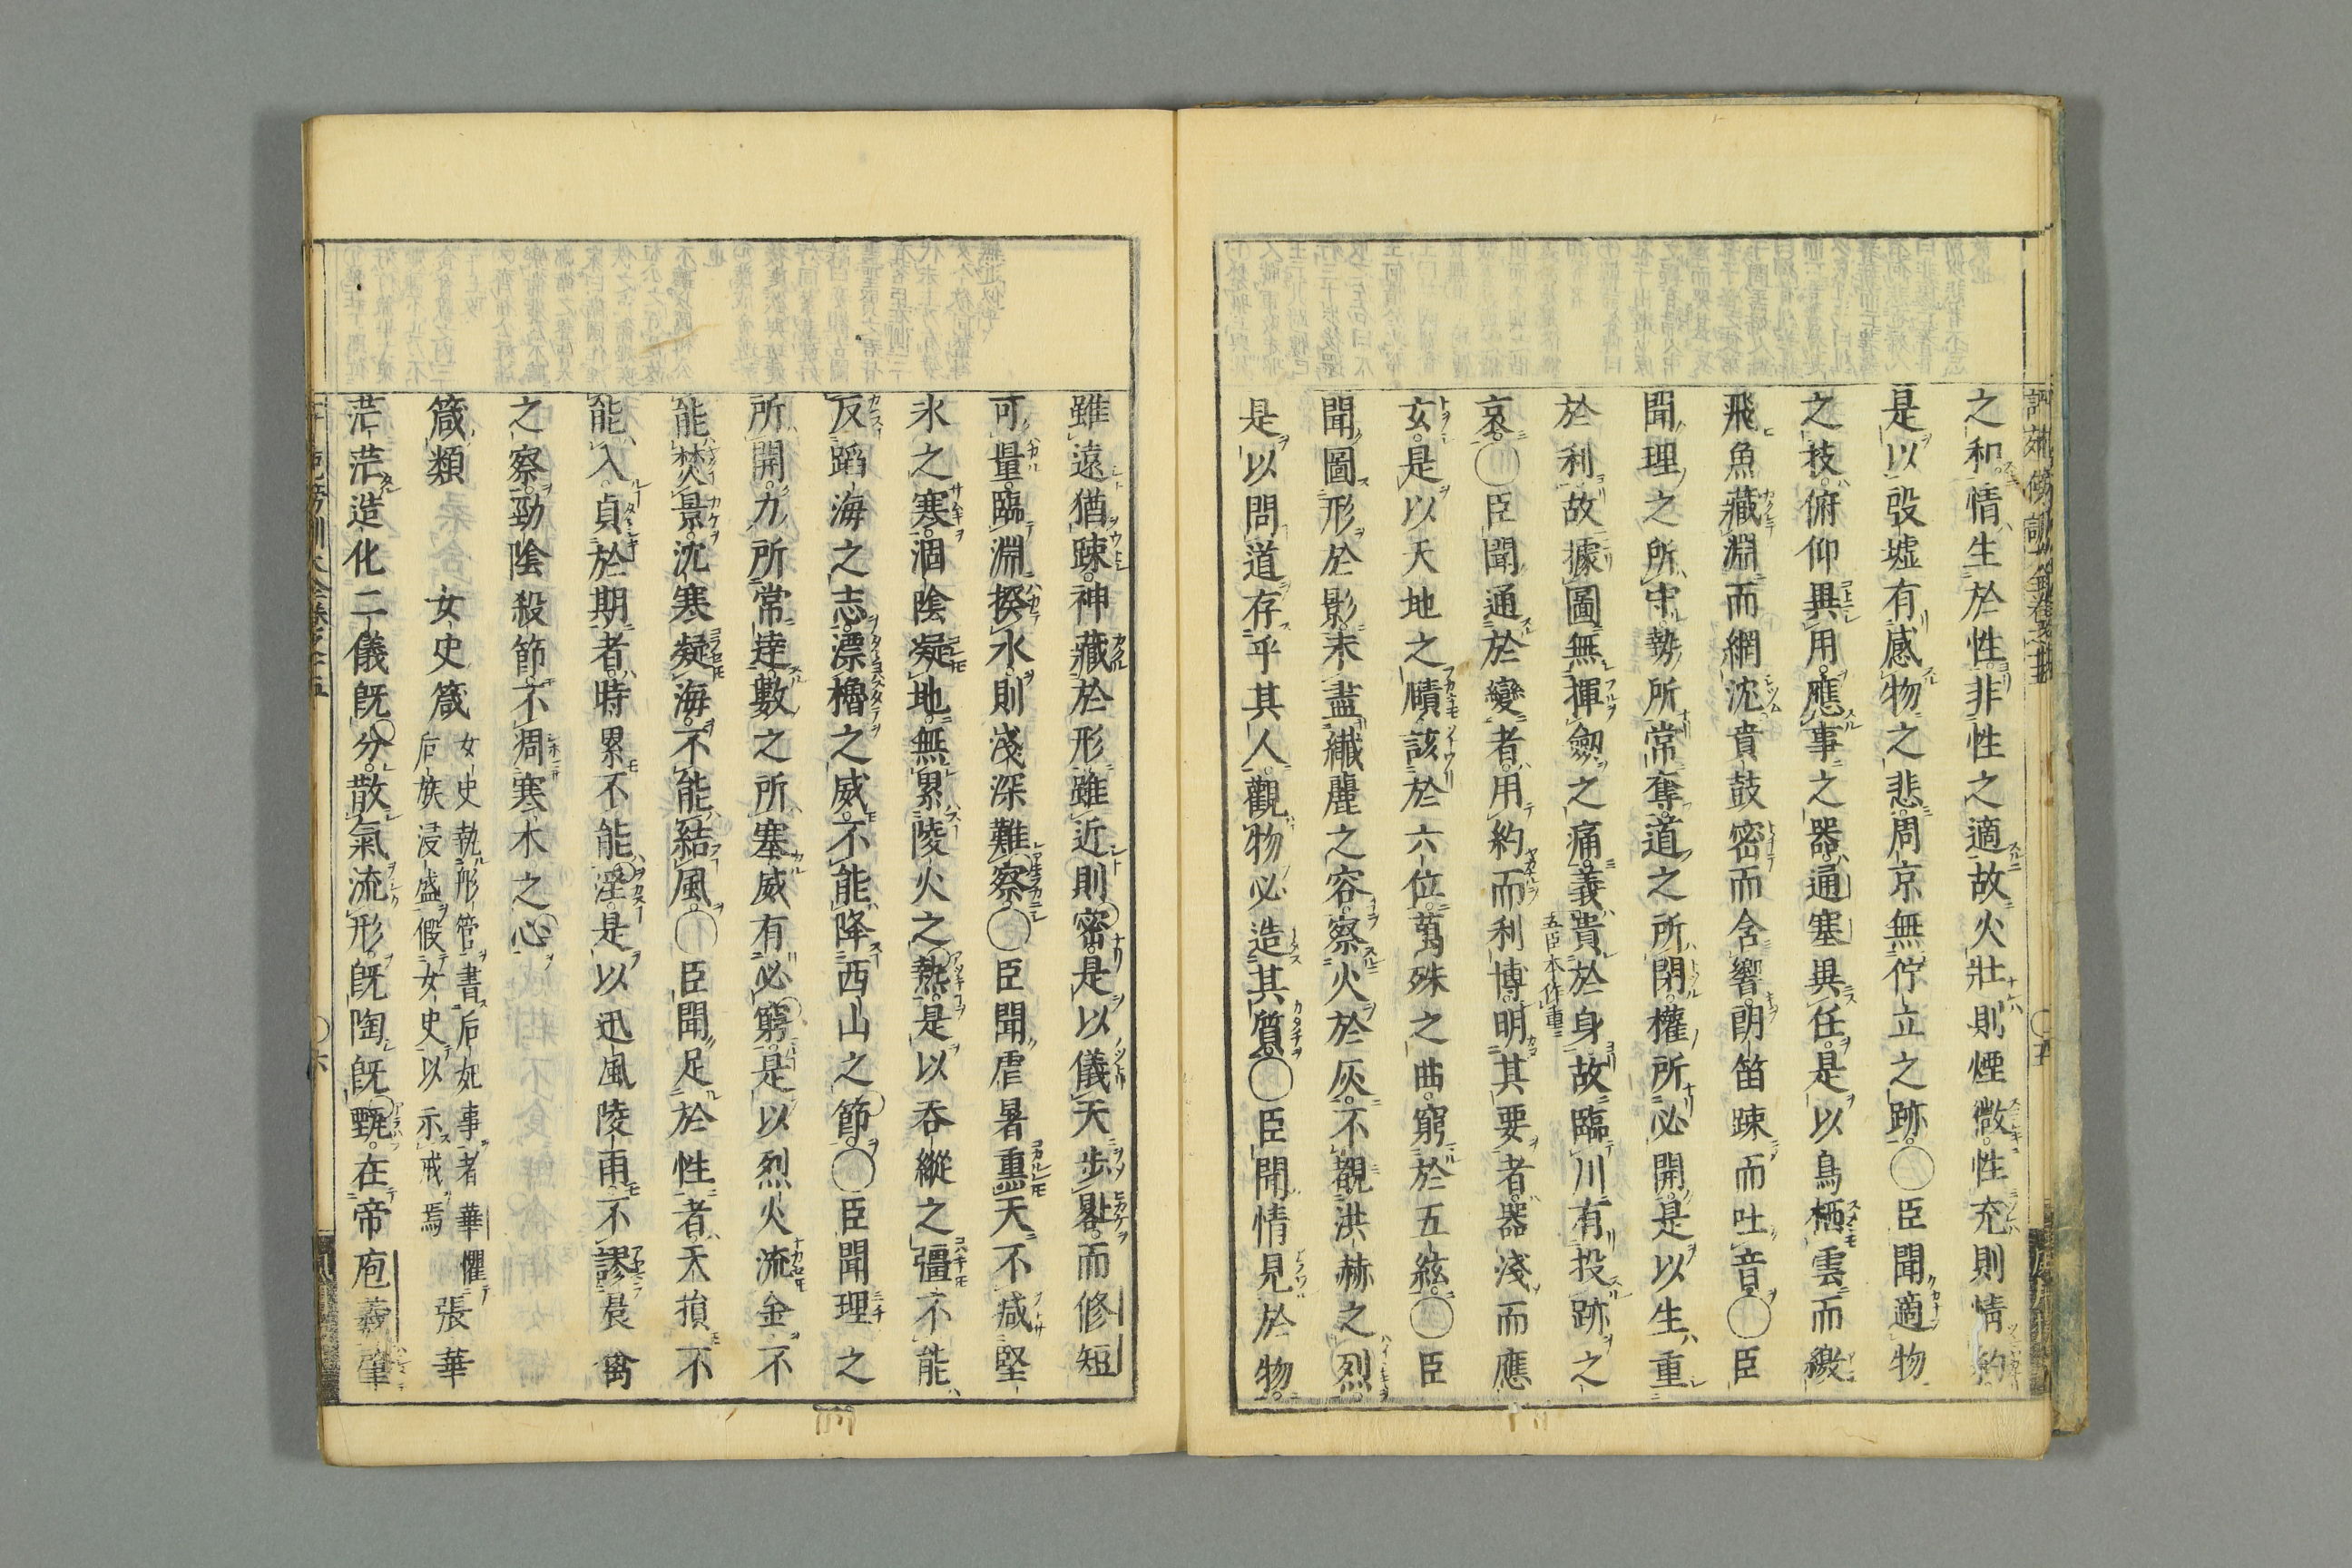 之和情生於性非性之適故火壯則煙微性充則情約
是以殷墟有感物之悲周京無佇立之跡○臣聞適物
之技俯仰異用應事之器通塞異任是以鳥栖雲而繳
飛魚藏淵而網沈賁鼓密而含響朗笛疎而吐音○臣
聞理之所守勢所常奪道之所閉權所必開是以生重
於利故據圖無揮劒之痛義貴於身故臨川有投跡之
五臣本作重
哀○臣聞通於變者用約而利博明其要者器淺而應
玄是以天地之賾該於六位萬殊之曲窮於五絃○臣
聞圖形於影未盡纎麗之容察火於灰不覩洪赫之烈
是以問道存乎其人觀物必造其質○臣聞情見於物
雖遠猶踈神藏於形雖近則密是以儀天步晷而修短
可量臨淵揆水則淺深難察○臣聞虐暑熏天不減堅
氷之寒涸陰凝地無累陵火之熱是以吞縱之彊不能
反蹈海之志漂櫓之威不能降西山之節○臣聞理之
所開力所常達數之所塞威有必窮是以烈火流金不
能焚景沈寒凝海不能結風○臣聞足於性者天損不
能入貞於期者時累不能淫是以迅風陵雨不謬晨禽
之察勁陰殺節不凋寒木之心
箴類
女史箴
女史執彤管書后妃事者華懼
后族浸盛假女史以示戒焉
張華
茫茫造化二儀既分散氣流形既陶既甄在帝庖羲肇